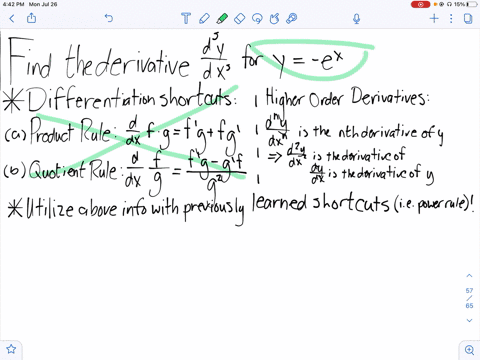 4:42 PM Mon Jul 26
15%
Find the derivative d³y/dx³ for y = -eˣ
* Differentiation shortcuts:
(a) Product Rule: d/dx f·g = f'g + fg'
(b) Quotient Rule: d/dx f/g = f'g - g'f/g²
| Higher Order Derivatives:
| dⁿy/dxⁿ is the nth derivative of y
| ⇒ d²y/dx² is the derivative of
| dy/dx is the derivative of y
* Utilize above info with previously learned shortcuts (i.e. power rule)!
57
/
65